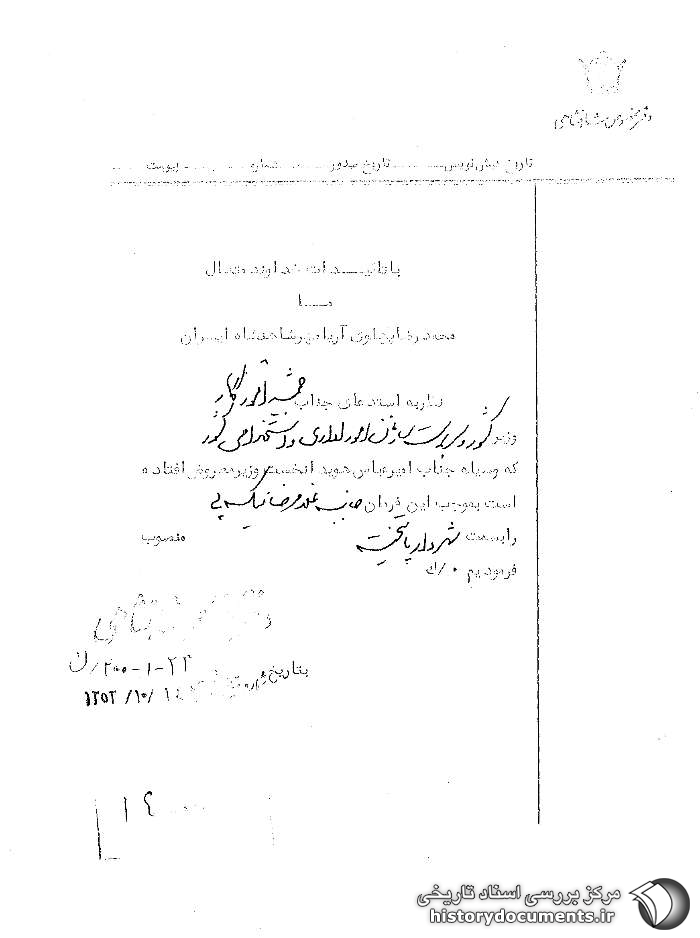 دفتر مخصوص شاهنشاهی
تاریخ پیش نویس ........ تاریخ صدور ........ شماره ........ پیوست ........
با تائیدات خداوند متعال
ما
محمدرضا پهلوی آریامهر شاهنشاه ایران
نظر به استدعای جناب جمشید آموزگار
وزیر کشور و سرپرست سازمان امور اداری و استخدامی کشور
که وسیله جناب امیرعباس هویدا نخست وزیر معروض افتاده
است بموجب این فرمان غلامرضا نیک پی
را بسمت شهردار پایتخت منصوب
فرمودیم ۰/ک
دفتر مخصوص شاهنشاهی
۲۰۰-۱-۲۳/ن
بتاریخ
۱۳۵۳/۱۰/
۱۴
مرکز بررسی اسناد تاریخی
historydocuments.ir